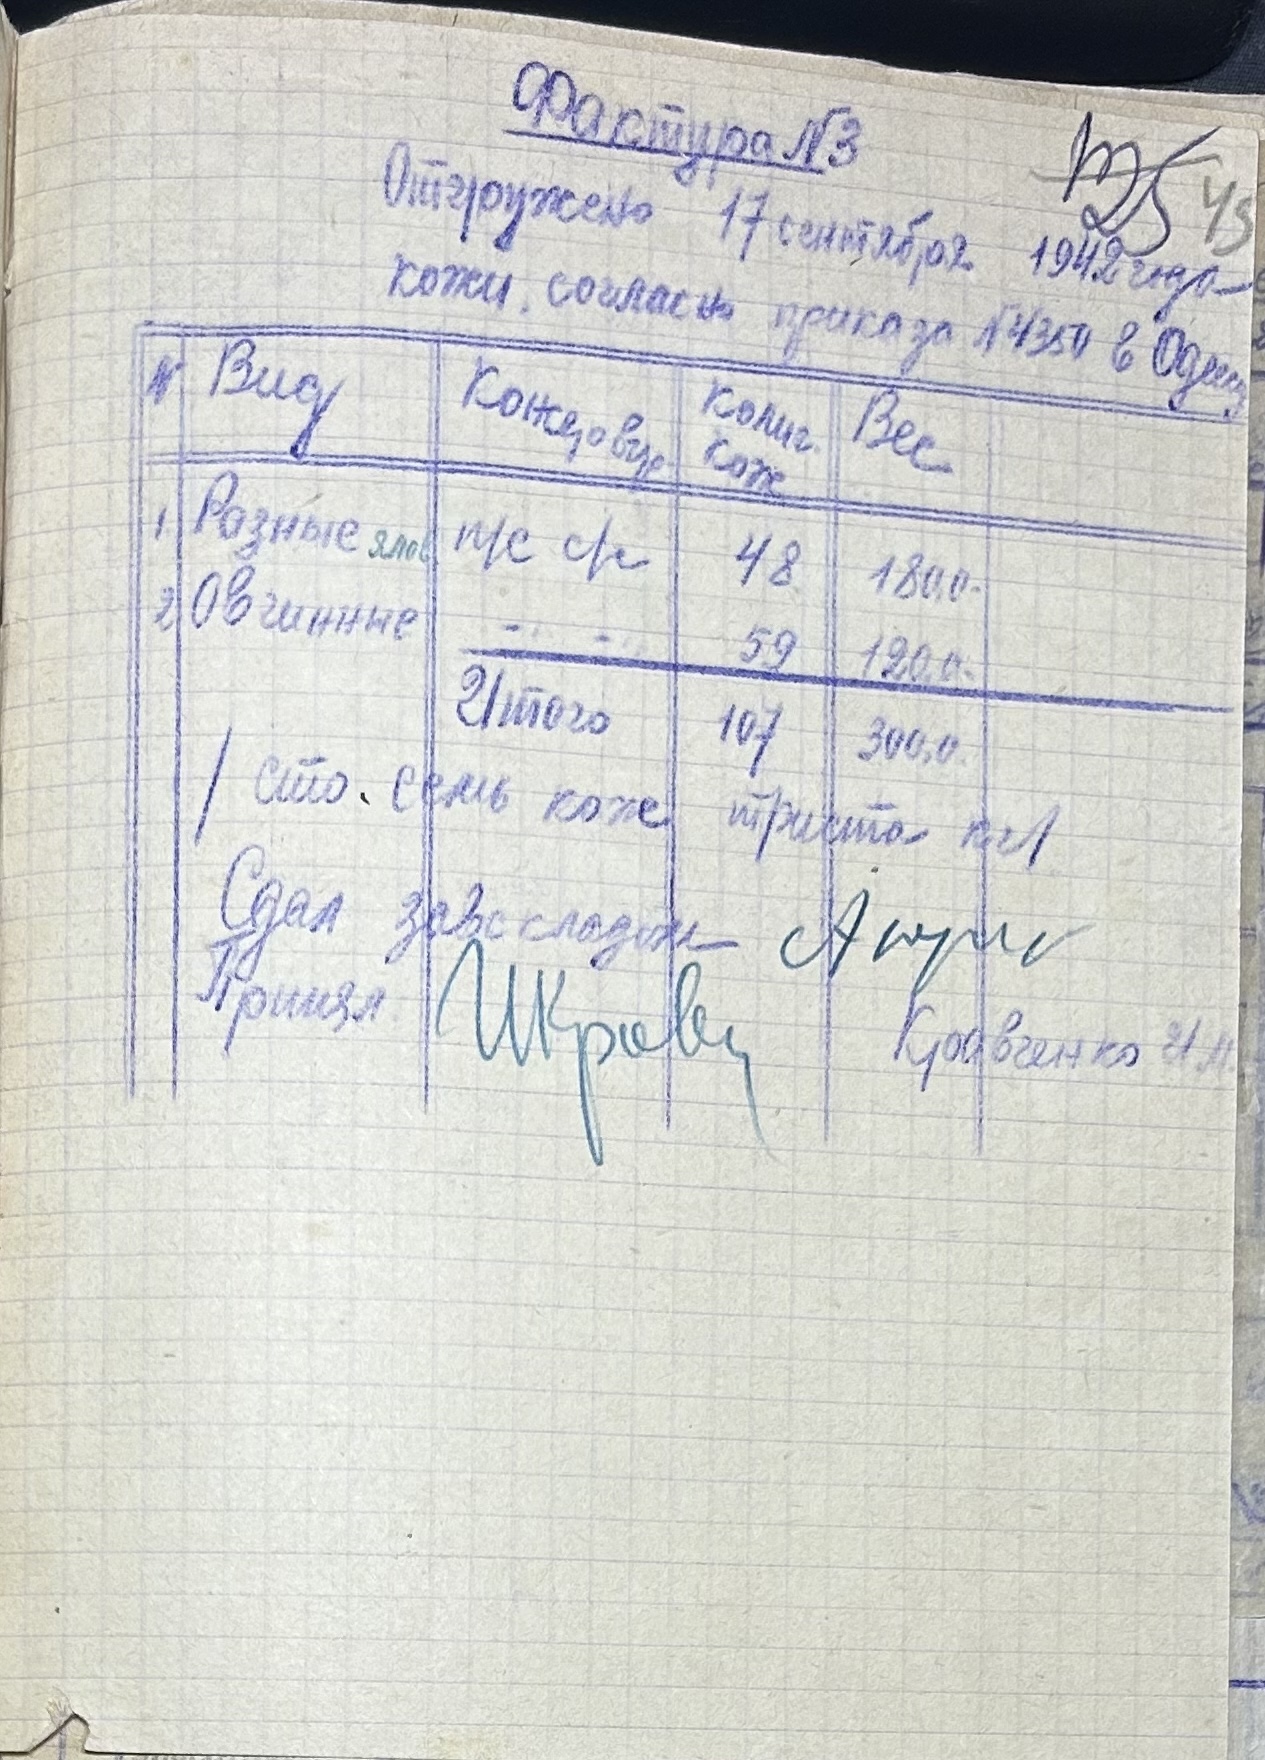 Фактура №3
25 45
Отгружено 17 сентября 1942 года
кожи, согласно приказа №4350 в Одессу
№ Вид колич. кож Вес
1 Разные ялов 48 180,0
2 Овчинные -"- -"- 59 120,0
Итого 107 300,0
/ сто семь кож триста кг/
Сдал зав складом
Принял ИКравч Кравченко И М.